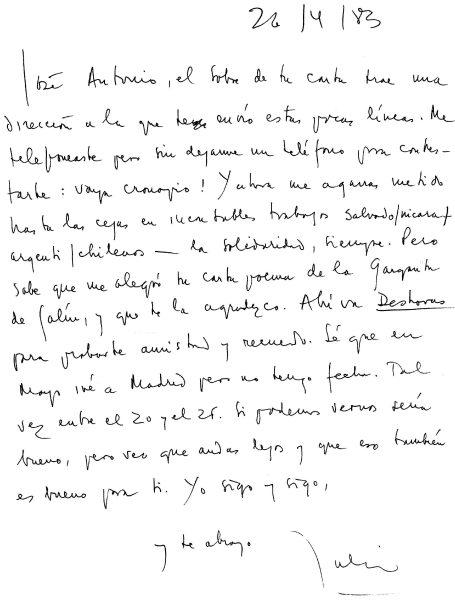 26/4/83
José Antonio, el sobre de tu carta trae una
dirección a la que te envío estas pocas líneas. Me
telefoneaste pero sin dejarme un teléfono para contes-
tarte: vaya cronopio! Y ahora me agarras metido
hasta las cejas en incontables trabajos salvado/nicara/
argenti/chilenos — la solidaridad, siempre. Pero
sabe que me alegró tu carta poema de la Garganta
de Galín, y que te la agradezco. Ahí va Deshoras
para probarte amistad y recuerdo. Sé que en
mayo iré a Madrid pero no tengo fecha. Tal
vez entre el 20 y el 25. Si podemos vernos sería
bueno, pero veo que andas lejos y que eso también
es bueno para ti. Yo sigo y sigo,
y te abrazo
Julio